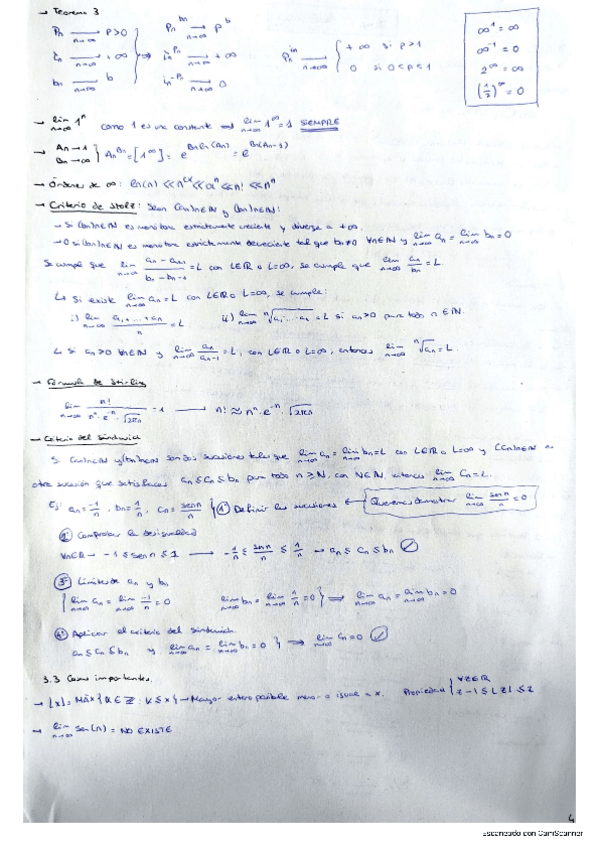 → Teorema 3
Pn →(n→∞) P>0   Pn^bn →(n→∞) P^b
ln →(n→∞) +∞ ⟹ ln^Pn →(n→∞) +∞   Pn^ln →(n→∞) { +∞ si P>1
bn →(n→∞) b   ln^-Pn →(n→∞) 0   0 si 0<P<1
∞¹ = ∞
∞⁻¹ = 0
2^∞ = ∞
(1/2)^∞ = 0
→ lim n→∞ 1^n como 1 es una constante → lim n→∞ 1^∞ = 1 SIEMPRE
→ An→1 Bn→∞ } An^Bn = [1^∞] = e^(Bn ln(An)) = e^(Bn(An-1))
→ Órdenes de ∞: ln(n) << n^α << a^n << n! << n^n
→ Criterio de Stolz: Sean (an)n∈N y (bn)n∈N:
→ Si (bn)n∈N es monótona estrictamente creciente y diverge a +∞.
→ O si (bn)n∈N es monótona estrictamente decreciente tal que bn≠0 ∀n∈N y lim n→∞ an = lim n→∞ bn = 0
Se cumple que lim n→∞ (an - an-1)/(bn - bn-1) = L con L∈R o L=∞, se cumple que lim n→∞ an/bn = L.
↳ Si existe lim n→∞ an = L con L∈R o L=∞, se cumple:
i) lim n→∞ (a1+...+an)/n = L   ii) lim n→∞ ⁿ√(a1·...·an) = L si an>0 para todo n∈N.
↳ Si an>0 ∀n∈N y lim n→∞ an/an-1 = L, con L∈R o L=∞, entonces lim n→∞ ⁿ√an = L.
→ Fórmula de Stirling
lim n→∞ n!/(n^n · e^-n · √2πn) = 1 → n! ≈ n^n · e^-n · √2πn
→ Criterio del Sándwich
Si (an)n∈N y (bn)n∈N son dos sucesiones tales que lim n→∞ an = lim n→∞ bn = L con L∈R o L=∞ y (Cn)n∈N es
otra sucesión que satisface an ≤ Cn ≤ bn para todo n ≥ N, con N∈N, entonces lim n→∞ Cn = L.
Ej: an = -1/n, bn = 1/n, Cn = sen n/n } ① Definir las sucesiones ← Queremos demostrar lim n→∞ sen n/n = 0
② Comprobar la desigualdad
∀n∈R → -1 ≤ sen n ≤ 1 → -1/n ≤ sen n/n ≤ 1/n → an ≤ Cn ≤ bn ✓
③ Límites de an y bn
{ lim n→∞ an = lim n→∞ -1/n = 0   lim n→∞ bn = lim n→∞ 1/n = 0 } ⟹ lim n→∞ an = lim n→∞ bn = 0
④ Aplicar el criterio del sándwich
an ≤ Cn ≤ bn y lim n→∞ an = lim n→∞ bn = 0 } ⟹ lim n→∞ Cn = 0 ✓
3.3 Casos importantes.
→ ⌊x⌋ = Máx{K∈Z : K ≤ x} → Mayor entero posible menor o igual a x. Propiedad { ∀z∈R
z-1 ≤ ⌊z⌋ ≤ z
→ lim n→∞ sen(n) = NO EXISTE
4
Escaneado con CamScanner